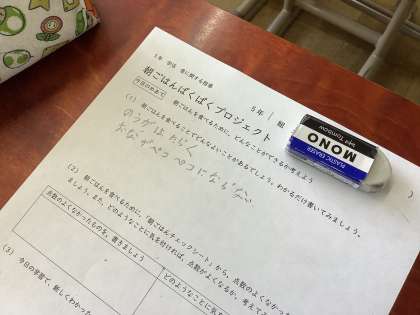 5年 学活 食に関する指導
朝ごはんぱくぱくプロジェクト
5年 1 組
今日のめあて 朝ごはんを食べるために、どんなことができるか考えよう
(1) 朝ごはんを食べることでどんなよいことがあるでしょう。わかるだけ書いてみましょう。
のうがはたらく
おながペコペコにならない
(2) 朝ごはんを食べるために、「朝ごはんチェックシート」から、点数のよくなかった
ましょう。また、どのようなことに気を付ければ、点数がよくなるか、考えて
点数のよくなかったものを、書きましょう
どのようなことに気
(3) 今日の学習で、新しくわかった
PLASTIC ERASER
MONO
Tombow